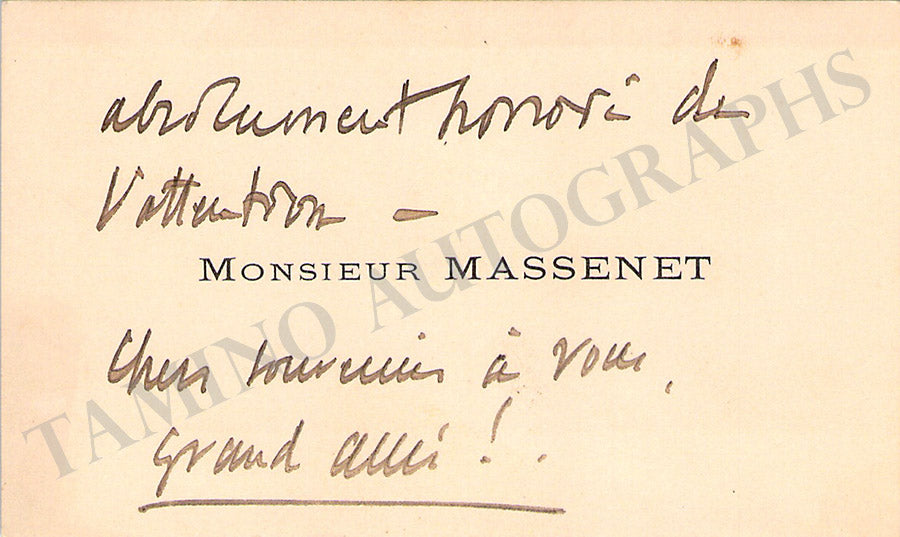 absolument honoré de
l'attention —
MONSIEUR MASSENET
Chers souvenirs à vous,
grand ami !.
TAMINO AUTOGRAPHS